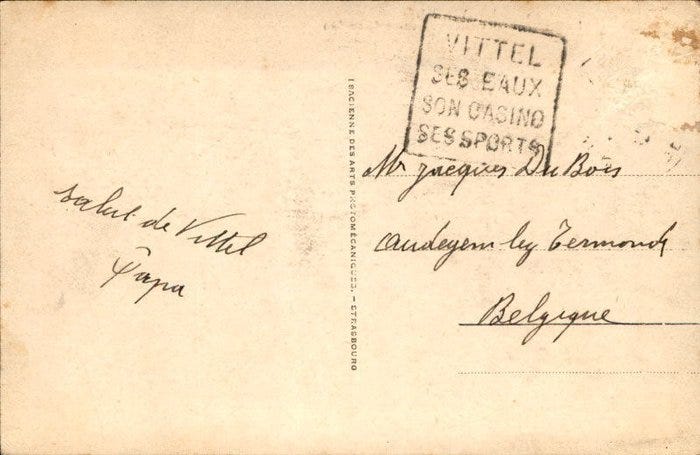 VITTEL
SES EAUX
SON CASINO
SES SPORTS
ISACIENNE DES ARTS PHOTOMÉCANIQUES. – STRASBOURG
Salut de Vittel
Papa
Mr Jacques Du Bois
Audegem lez Termonde
Belgique